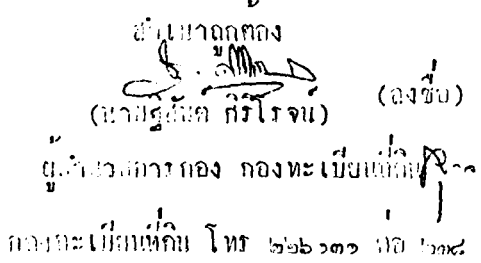 สำเนาถูกต้อง
(ลงชื่อ)
ศิริโรจน์)
ผู้อำนวยการกอง กองทะเบียนที่ดิน
กองทะเบียนที่ดิน โทร ๒๒๖๑๓๑ ต่อ